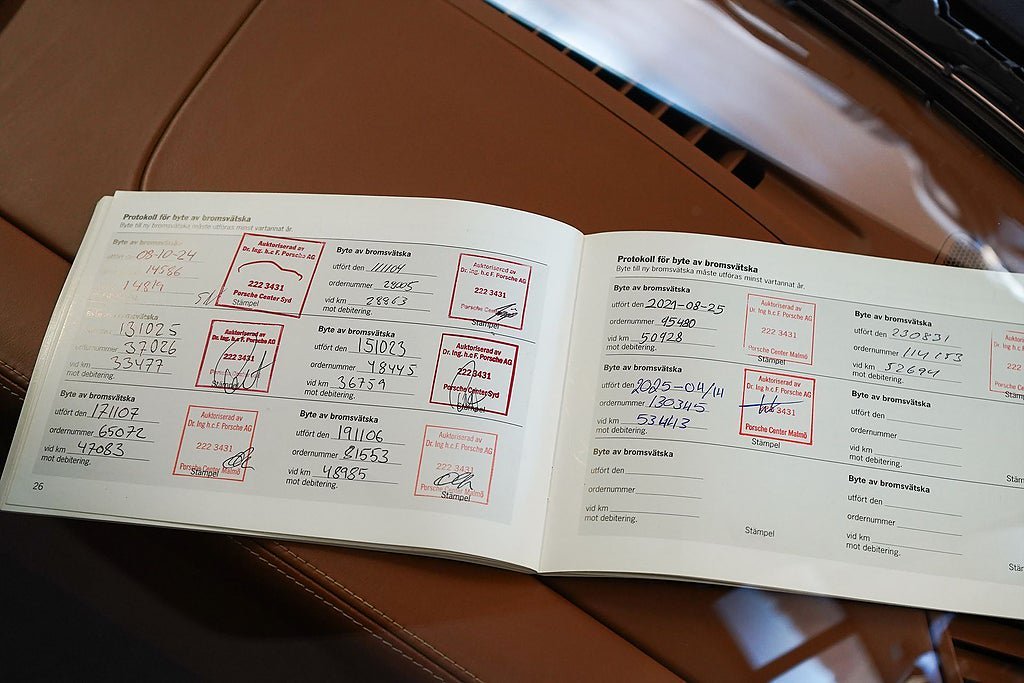 Protokoll för byte av bromsvätska
Byte till ny bromsvätska måste utföras minst vartannat år.
Byte av bromsvätska
utfört den 08-10-24
14586
14819
Auktoriserad av
Dr. Ing. h.c F. Porsche AG
222 3431
Porsche Center Syd
Stämpel
Byte av bromsvätska
utfört den 111104
ordernummer 28005
vid km 28963
mot debitering.
Auktoriserad av
Dr. Ing. h.c F. Porsche AG
222 3431
Porsche
Stämpel
Byte av bromsvätska
utfört den 131025
ordernummer 37026
vid km 33477
mot debitering.
Auktoriserad av
Dr. Ing. h.c F. Porsche AG
222 3431
Stämpel
Byte av bromsvätska
utfört den 151023
ordernummer 48445
vid km 36759
mot debitering.
Auktoriserad av
Dr. Ing. h.c F. Porsche AG
222 3431
Porsche Center Syd
Stämpel
Byte av bromsvätska
utfört den 171107
ordernummer 65072
vid km 47083
mot debitering.
Auktoriserad av
Dr. Ing h.c F. Porsche AG
222 3431
Porsche Center Malmö
Stämpel
Byte av bromsvätska
utfört den 191106
ordernummer 81553
vid km 48985
mot debitering.
Auktoriserad av
Dr. Ing h.c F. Porsche AG
222 3431
Porsche Center Malmö
Stämpel
26
Protokoll för byte av bromsvätska
Byte till ny bromsvätska måste utföras minst vartannat år.
Byte av bromsvätska
utfört den 2021-08-25
ordernummer 95490
vid km 50928
mot debitering.
Auktoriserad av
Dr. Ing h.c F. Porsche AG
222 3431
Porsche Center Malmö
Byte av bromsvätska
utfört den 230831
ordernummer 114153
vid km 52694
mot debitering.
Byte av bromsvätska
utfört den 2025-04/14
ordernummer 130345
vid km 53443
mot debitering.
Auktoriserad av
Dr. Ing h.c F. Porsche AG
3431
Porsche Center Malmö
Stämpel
Byte av bromsvätska
utfört den
ordernummer
vid km
mot debitering.
Byte av bromsvätska
utfört den
ordernummer
vid km
mot debitering.
Stämpel
Byte av bromsvätska
utfört den
ordernummer
vid km
mot debitering.